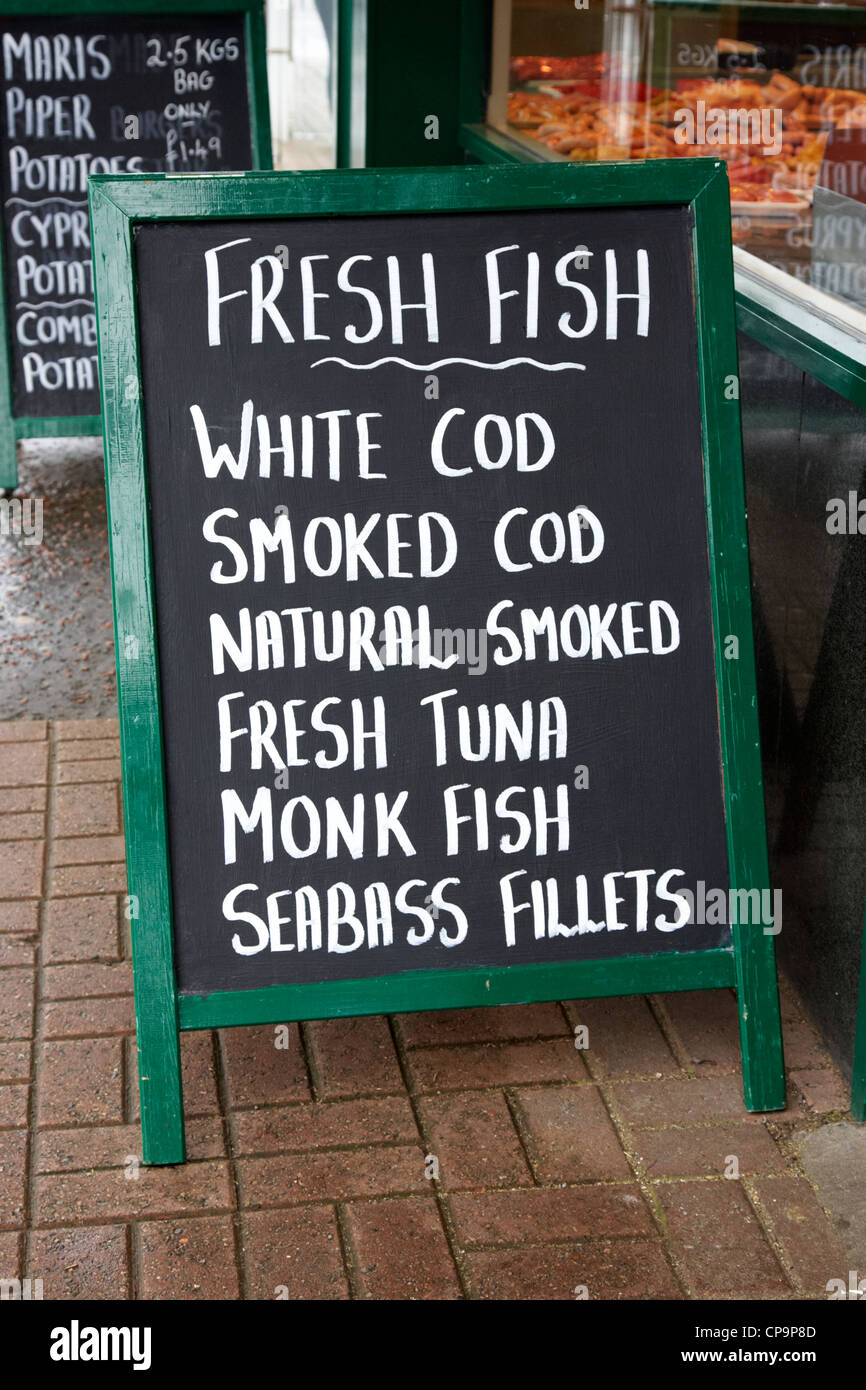 MARIS
PIPER
POTATOES
2.5 KGS
BAG
ONLY
£1.49
CYPR
POTAT
COMB
POTAT
FRESH FISH
WHITE COD
SMOKED COD
NATURAL SMOKED
FRESH TUNA
MONK FISH
SEABASS FILLETS
alamy
Image ID: CP9P8D
www.alamy.com